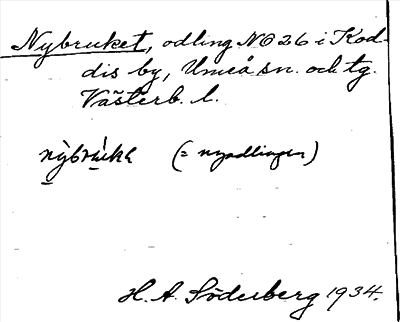 Nybruket, odling NO 26 i Kod-
dis by, Umeå sn. och tg.
Västerb. l.
nỳbrùkə (= nyodlingen)
H. A. Söderberg 1934.